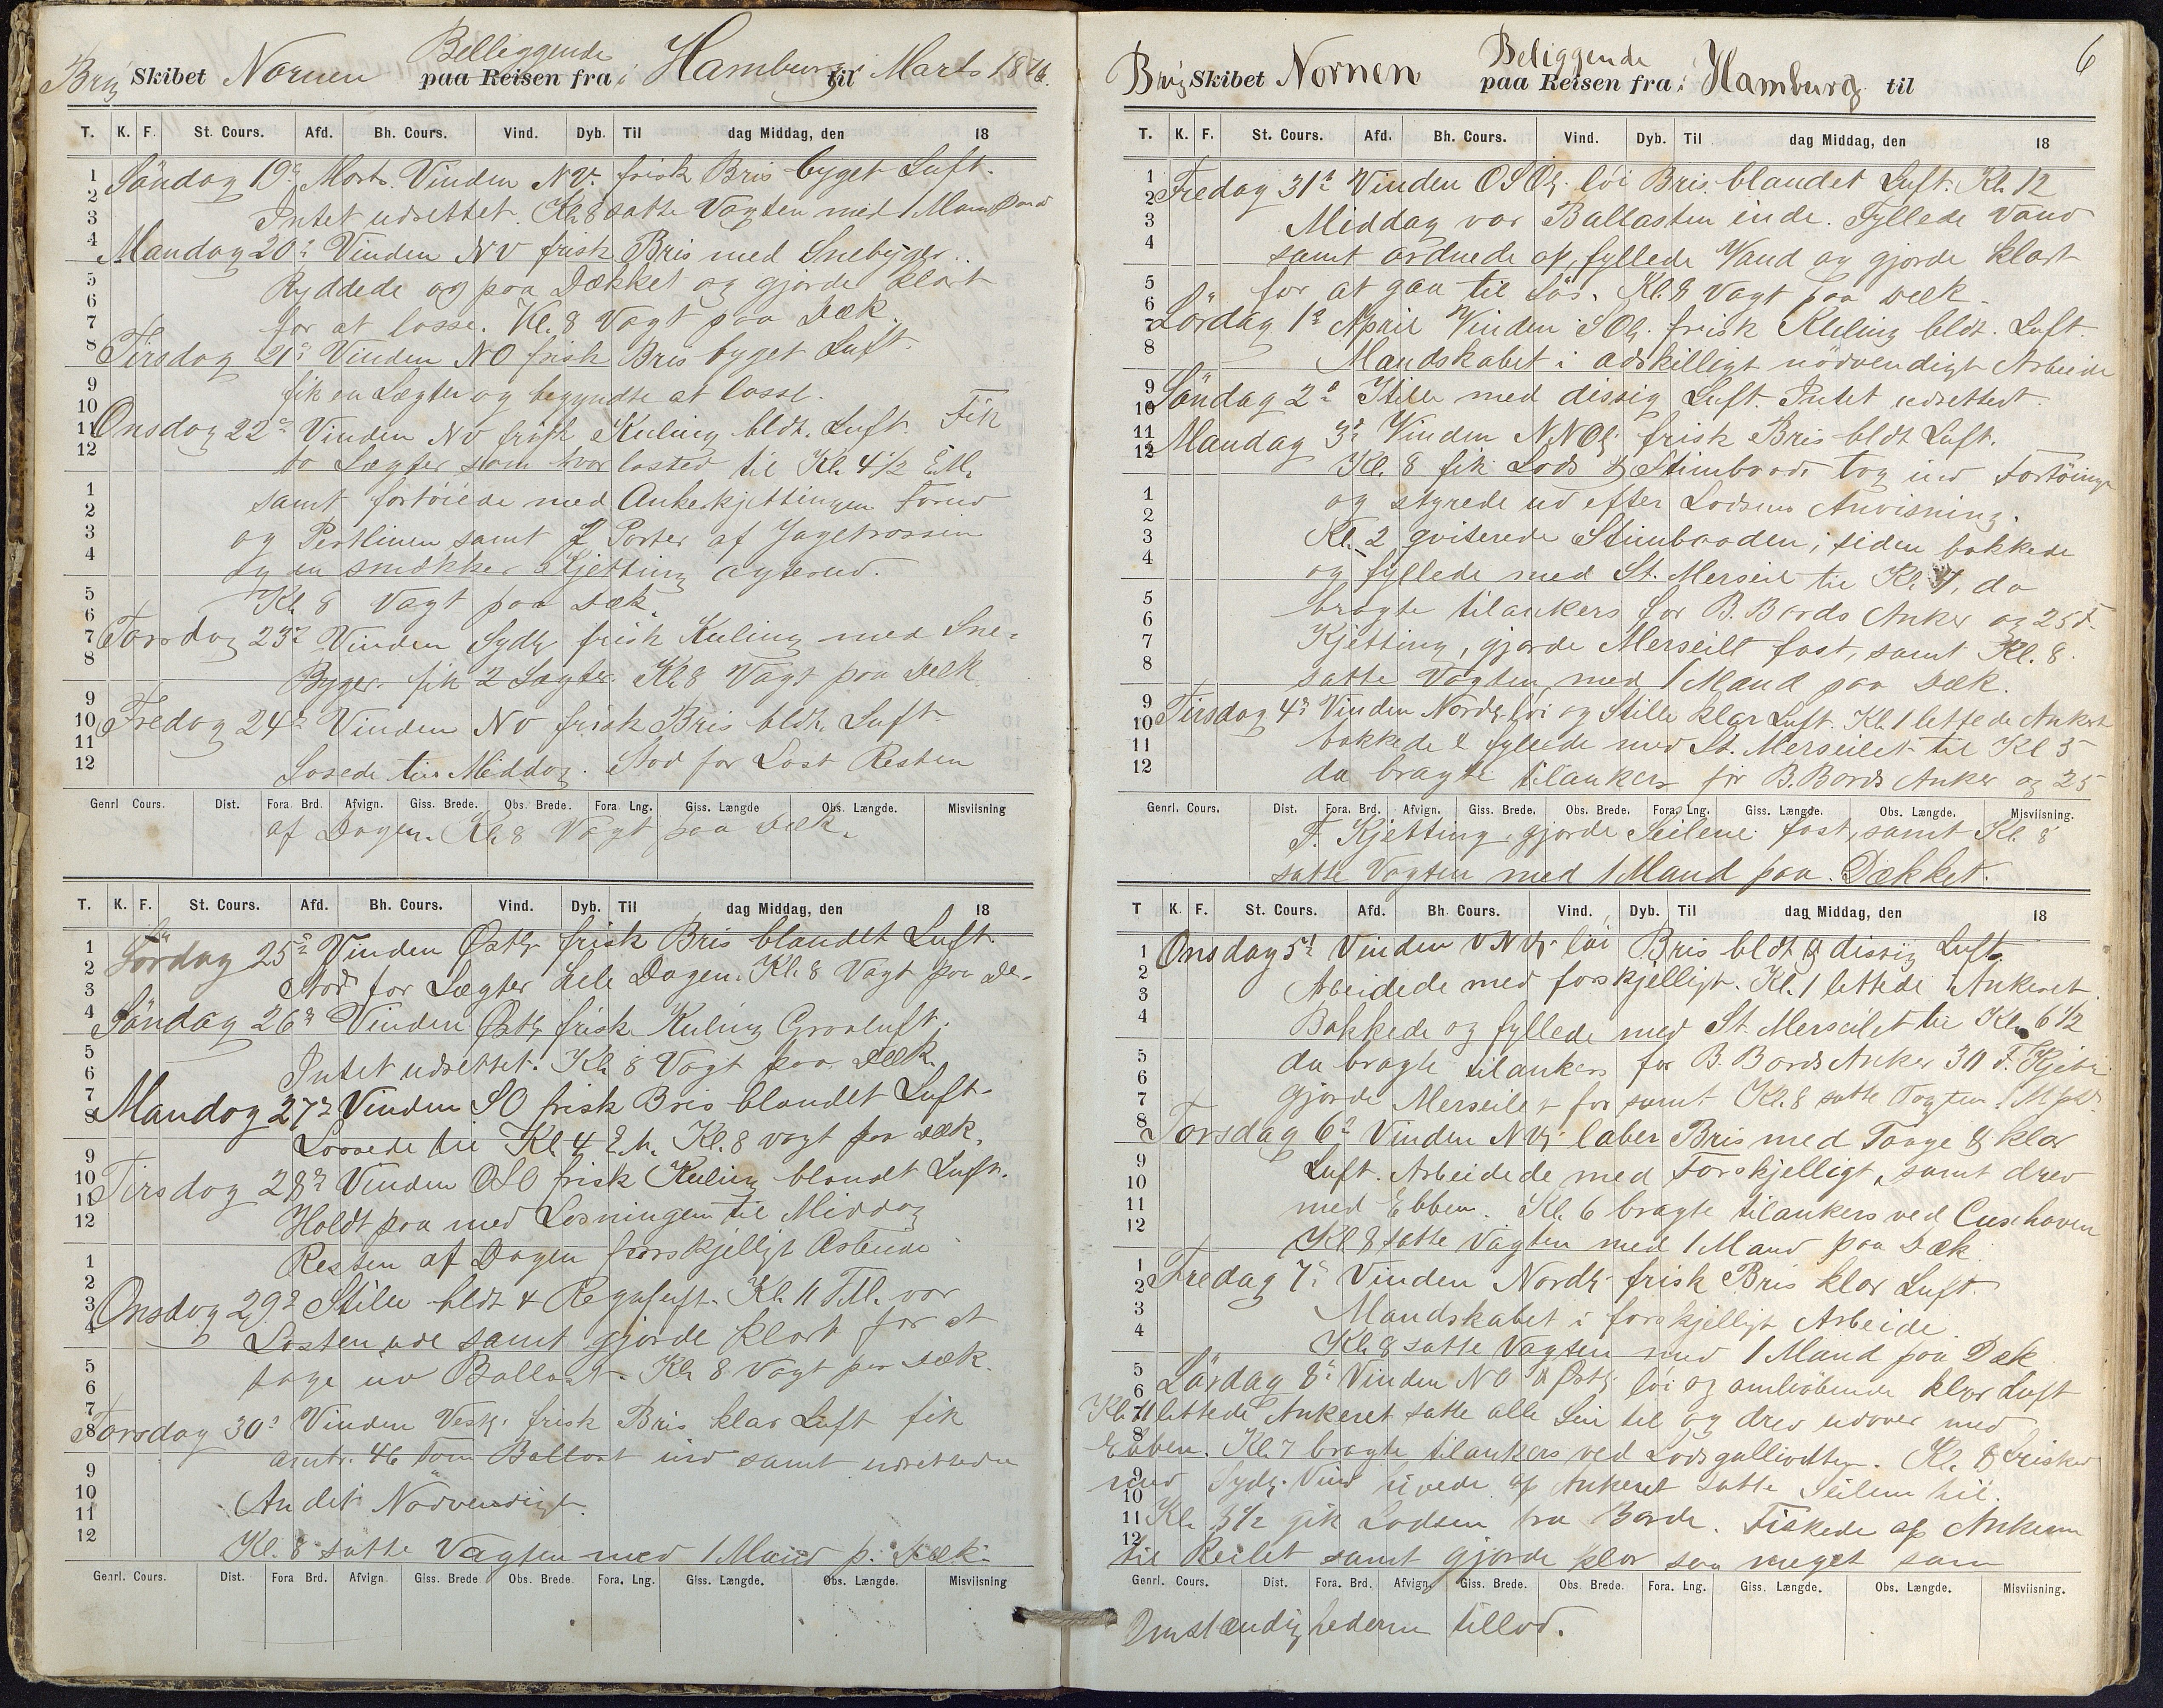 Belliggende
Brig Skibet Nornen paa Reisen fra i Hamburg til Marts 1876.
T. K. F. St. Cours. Afd. Bh. Cours. Vind. Dyb. Til dag Middag, den 18
Söndag 19de Marts. Vinden NV. frisk Bris byget Luft.
Intet udrettet. Kl. 8 satte Vagten med 1 Mand
Mandag 20de Vinden NV frisk Bris med Snebyger.
Ryddede op paa Dækket og gjorde klart
for at losse. Kl. 8 Vagt paa Dæk.
Tirsdag 21de Vinden NO frisk Bris byget Luft.
fik en Lægter og begyndte at losse.
Onsdag 22de Vinden NV frisk Kuling bldt. Luft. Fik
to Lægter som hvor lasted til Kl. 4 1/2 E.M.
samt fortöiede med Ankerkjettingen Forud
og Pertlinen samt 2 Parter af Jagetrossen
og en smækker Kjetting agterud.
Kl. 8 Vagt paa Dæk.
Torsdag 23de Vinden Sydlig frisk Kuling med Sne-
Byger. fik 2 Lægter. Kl. 8 Vagt paa Dæk
Fredag 24de Vinden NV frisk Bris bldt. Luft
Lossede til Middag. Stod for Last Resten
Genrl Cours. Dist. Fora. Brd. Afvign. Giss. Brede. Obs. Brede. Fora Lng. Giss. Længde Obs. Længde. Misviisning
af Dagen. Kl. 8 Vagt paa Dæk.
T. K. F. St. Cours. Afd. Bh. Cours. Vind. Dyb. Til dag Middag, den 18
Lördag 25de Vinden Östlig frisk Bris blandet Luft.
Stod for Lægter hele Dagen. Kl. 8 Vagt paa De-
Söndag 26de Vinden Östlig frisk Kuling Graaluft.
Intet udrettet. Kl. 8 Vagt paa Dæk.
Mandag 27de Vinden SO frisk Bris blandet Luft.
Lossede til Kl 4 E.M. Kl. 8 vagt paa Dæk.
Tirsdag 28de Vinden OSO frisk Kuling blandt Luft.
Holdt paa med Losningen til Middag
Resten af Dagen forskjelligt Arbeide
Onsdag 29de Stille bldt & Regnluft. Kl. 11 F.M. var
Lasten ude samt gjorde klart for at
tage ind Ballast. Kl. 8 Vagt paa Dæk.
Torsdag 30de Vinden Vestlig frisk Bris klar Luft fik
omtr. 46 Tons Ballast ind samt udrettede
Andet Nödvendigt.
Kl. 8 satte Vagten med 1 Mand p. Dæk.
Genrl. Cours. Dist. Fora Brd. Afvign. Giss. Brede Obs. Brede. Fora. Lng. Giss. Længde. Obs. Længde. Misviisning
6
Beliggende
Brig Skibet Nornen paa Reisen fra i Hamburg til
T. K. F. St. Cours. Afd. Bh. Cours. Vind. Dyb. Til dag Middag, den 18
Fredag 31te Vinden OSOlig löi Bris blandet Luft. Kl. 12
Middag var Ballasten inde. Fyllede Vand
samt ordnede op, fyllede Vand og gjorde klart
for at gaa til Sös. Kl. 8 Vagt paa Dæk.
Lördag 1te April Vinden SOlig frisk Kuling bldt. Luft
Mandskabet i adskilligt nödvendigt Arbeide
Söndag 2de Stille med dissig Luft. Intet udrettet
Mandag 3de Vinden NNOlig frisk Bris bldt Luft.
Kl. 8 fik Lods & Stimbaad, tog ind Fortöininge
og styrede ud efter Lodsens Anvisning.
Kl. 2 qviterede Stimbaaden, siden bakkede
og fyllede med St. Merseil til Kl. 7, da
bragte tilankers for B. Bords Anker og 25 F.
Kjetting, gjorde Merseilt fast, samt Kl. 8.
satte Vagten med 1 Mand paa Dæk.
Tirsdag 4de Vinden Nordlig löi og Stille klar Luft. Kl. 1 lettede Ankert
bakkede & fyllede med St. Merseilet til Kl 5
da bragte tilankers for B.Bords Anker og 25
Genrl. Cours. Dist. Fora. Brd. Afvign. Giss. Brede. Obs. Brede. Fora. Lng. Giss. Længde. Obs. Længde. Misviisning.
F. Kjetting, gjorde Seilene fast, samt Kl. 8
satte Vagten med 1 Mand paa Dækket.
T K. F. St. Cours. Afd. Bh. Cours. Vind. Dyb. Til dag Middag, den 18
Onsdag 5te Vinden VNVlig löi Bris bldt & dissig Luft.
Arbeidede med forskjelligt. Kl. 1 lettede Ankeret
Bakkede og fyllede med St. Merseilet til Kl. 6 1/2
da bragte tilankers for B. Bords Anker 30 F. Kjett.
gjorde Merseilet for samt Kl. 8 satte Vagten 1 M.
Torsdag 6te Vinden NVlig laber Bris med Taage & klar
Luft. Arbeidede med Forskjelligt, samt drev
med Ebben. Kl. 6 bragte tilankers ved Cuxhaven
Kl 8 satte Vagten med 1 Mand paa Dæk.
Fredag 7de Vinden Nordlig frisk Bris klar Luft.
Mandskabet i forskjelligt Arbeide.
Kl. 8 satte Vagten med 1 Mand paa Dæk
Lördag 8de Vinden NO & Östlig löi og omlöbende klar Luft
Kl. 11 lettede Ankeret satte alle Seil til og drev udover med
Ebben. Kl. 7 bragte tilankers ved Lodsgalliothen. Kl. 8 frisked
med Sydlig Vind hivede op Ankeret satte Seilene til.
Kl. 1/2 gik Lodsen fra Borde. Fiskede op Ankerne
til Reilet samt gjorde klar saa meget som
Genrl. Cours. Dist. Fora. Brd. Afvign. Giss. Brede. Obs. Brede. Fora. Lng. Giss. Længde. Obs. Længde. Misviisning.
Omstændighederne tillod.